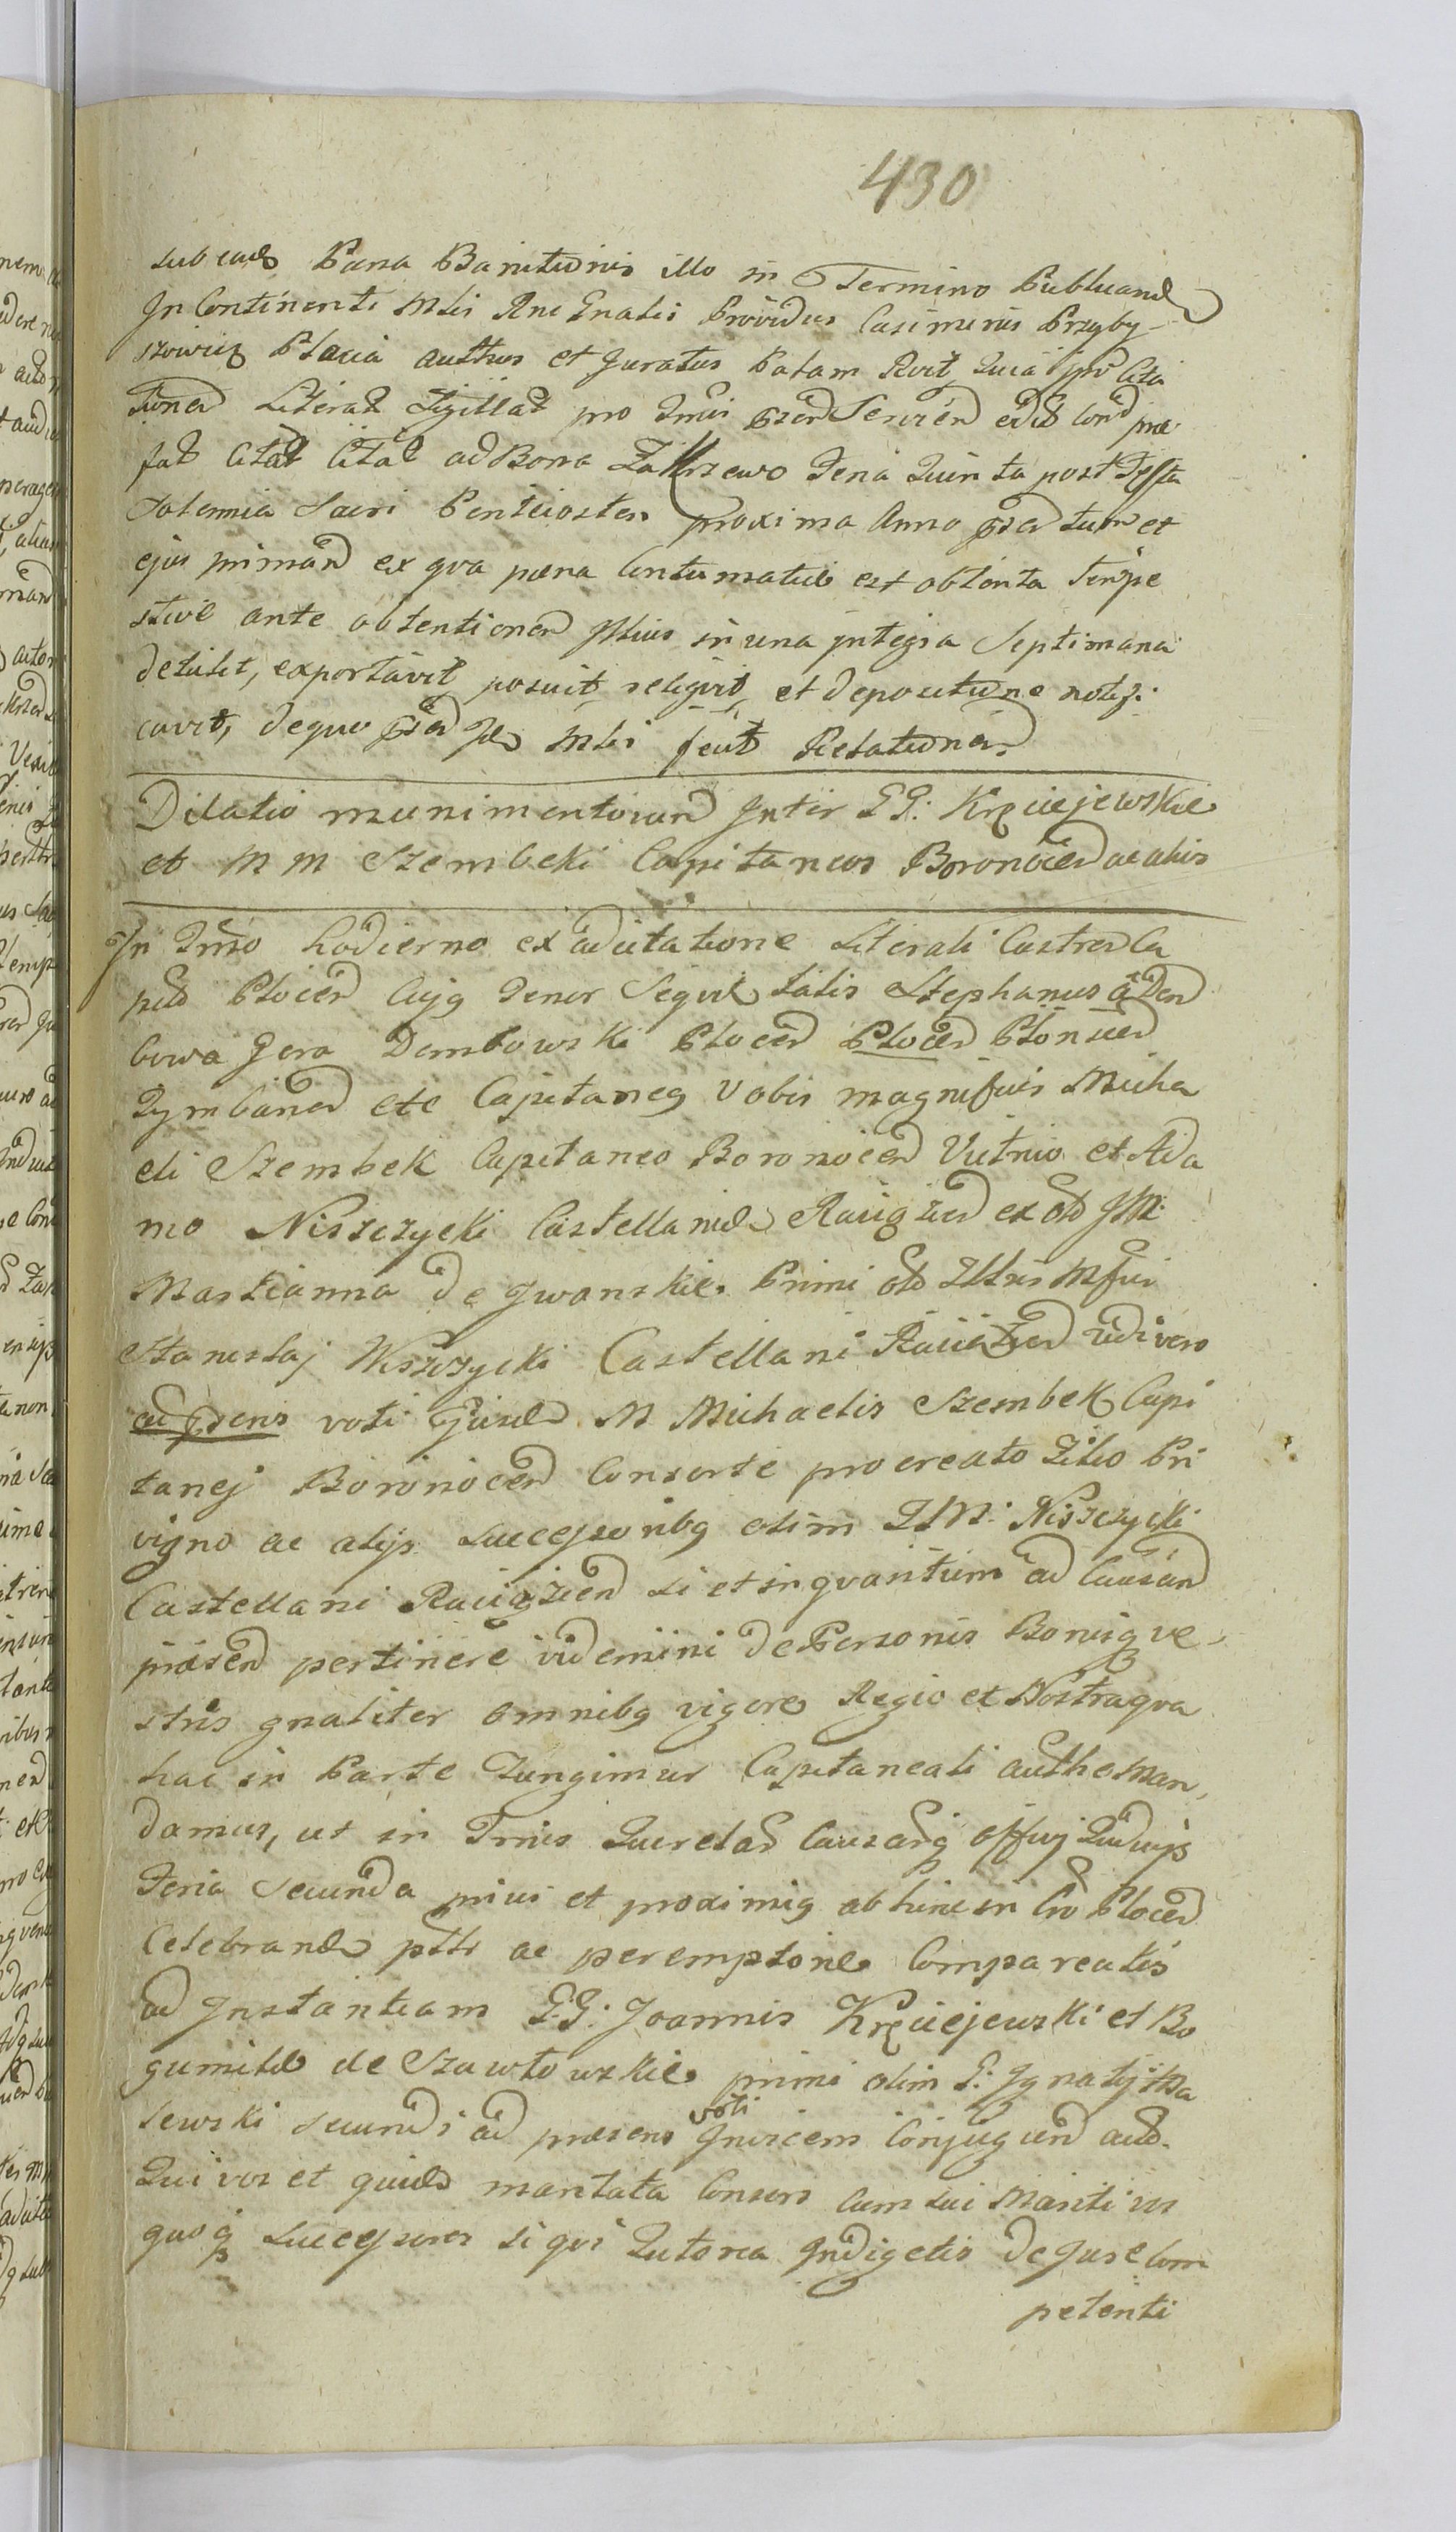 430
sub ead Pæna Banitionis illo in Termino Publicand
In Continenti Mtis Rne Gnalis Providus Casimirus Przyby-
szowicz Plocia authus et Juratus Palam Rvit Quia ipse Cita
tionem Literat Sigillat pro Tmi psen Servien edit con præ
fat Citat Citat ad Bona Zakrzewo Feria Quinta post Festa
Solennia Sacri Pentecostes proxima Anno psen tum et
ejus priman ex qva pæna Contumatiæ est obtenta Tempe
stive ante obtentionem Illius in una integra Septimana
detulit, exportavit posuit religvit, et depositione notifi
cavit, de quo psen Jd Mti fecit Relationem
Dilatio munimentorum Inter GG: Kręciejewskie
et M M Szembeki Capitaneos Boronocen ac alios
In Tmo hodierno ex adcitatione Literali Castren Ca
ptlo Plocen Cujg Tenor Seqvit talis Stephanus a Dem
bowa Gora Dembowski Plocen Plocen Plonscen
Tymbanen etc Capitaneg Vobis magnificis Micha
eli Szembek Capitaneo Boronocen Victrico et Ada
mo Niszczycki Castellanide Raciążen ex olo JM:
Marianna de Iwanskie Primi olo Illris Mfici
Stanislaj Niszczycki Castellani Raciążen
ad psens voti Ejusd M Michaelis Szembek Capi
tanej Boronocen Consorte procreato Filio Pri
vigno ac alijs Successoribg olim IM: Niszczycki
Castellani Raciążen si et inqvantum ad Causam
præsen pertinere videmini de Personis Bonisq ve
stris gnaliter omnibg vigore Regio et Nostraqva
hac in Parte Fungimur Capitaneali auththe Man
damus, ut in Tmis Querelar Causarq Officij
Feria Secunda privi et proximis abhinc in Cro Plocen
Celebrand psltr ac peremptorie Compareatis
ad Instantiam G:G: Joannis Kręciejewski et Bo
gumilæ de Szawłowskie primi olim G: Ignatij
sewski secundi ad præsens voti Invicem Conjugum acto.
Qui vos et quide maritata Consors cum sui Mariti vos
quoq Successores si qvi Tutorea Indigetis de Jure Com
petenti